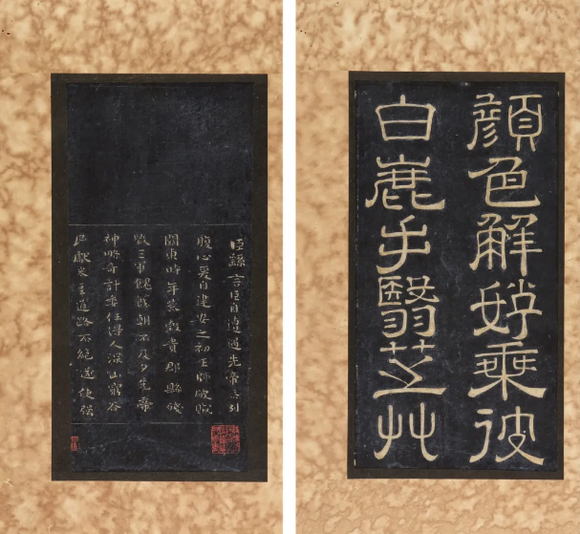 臣繇言臣自遭遇先帝忝列
腹心爰自建安之初王師破賊
關東時年荒穀貴郡縣殘
毀三軍餽饟朝不及夕先帝
神略奇計委任得人深山窮谷
民獻米豆道路不絕遂使強
顏色鮮好乘彼
白鹿手翳芝艸